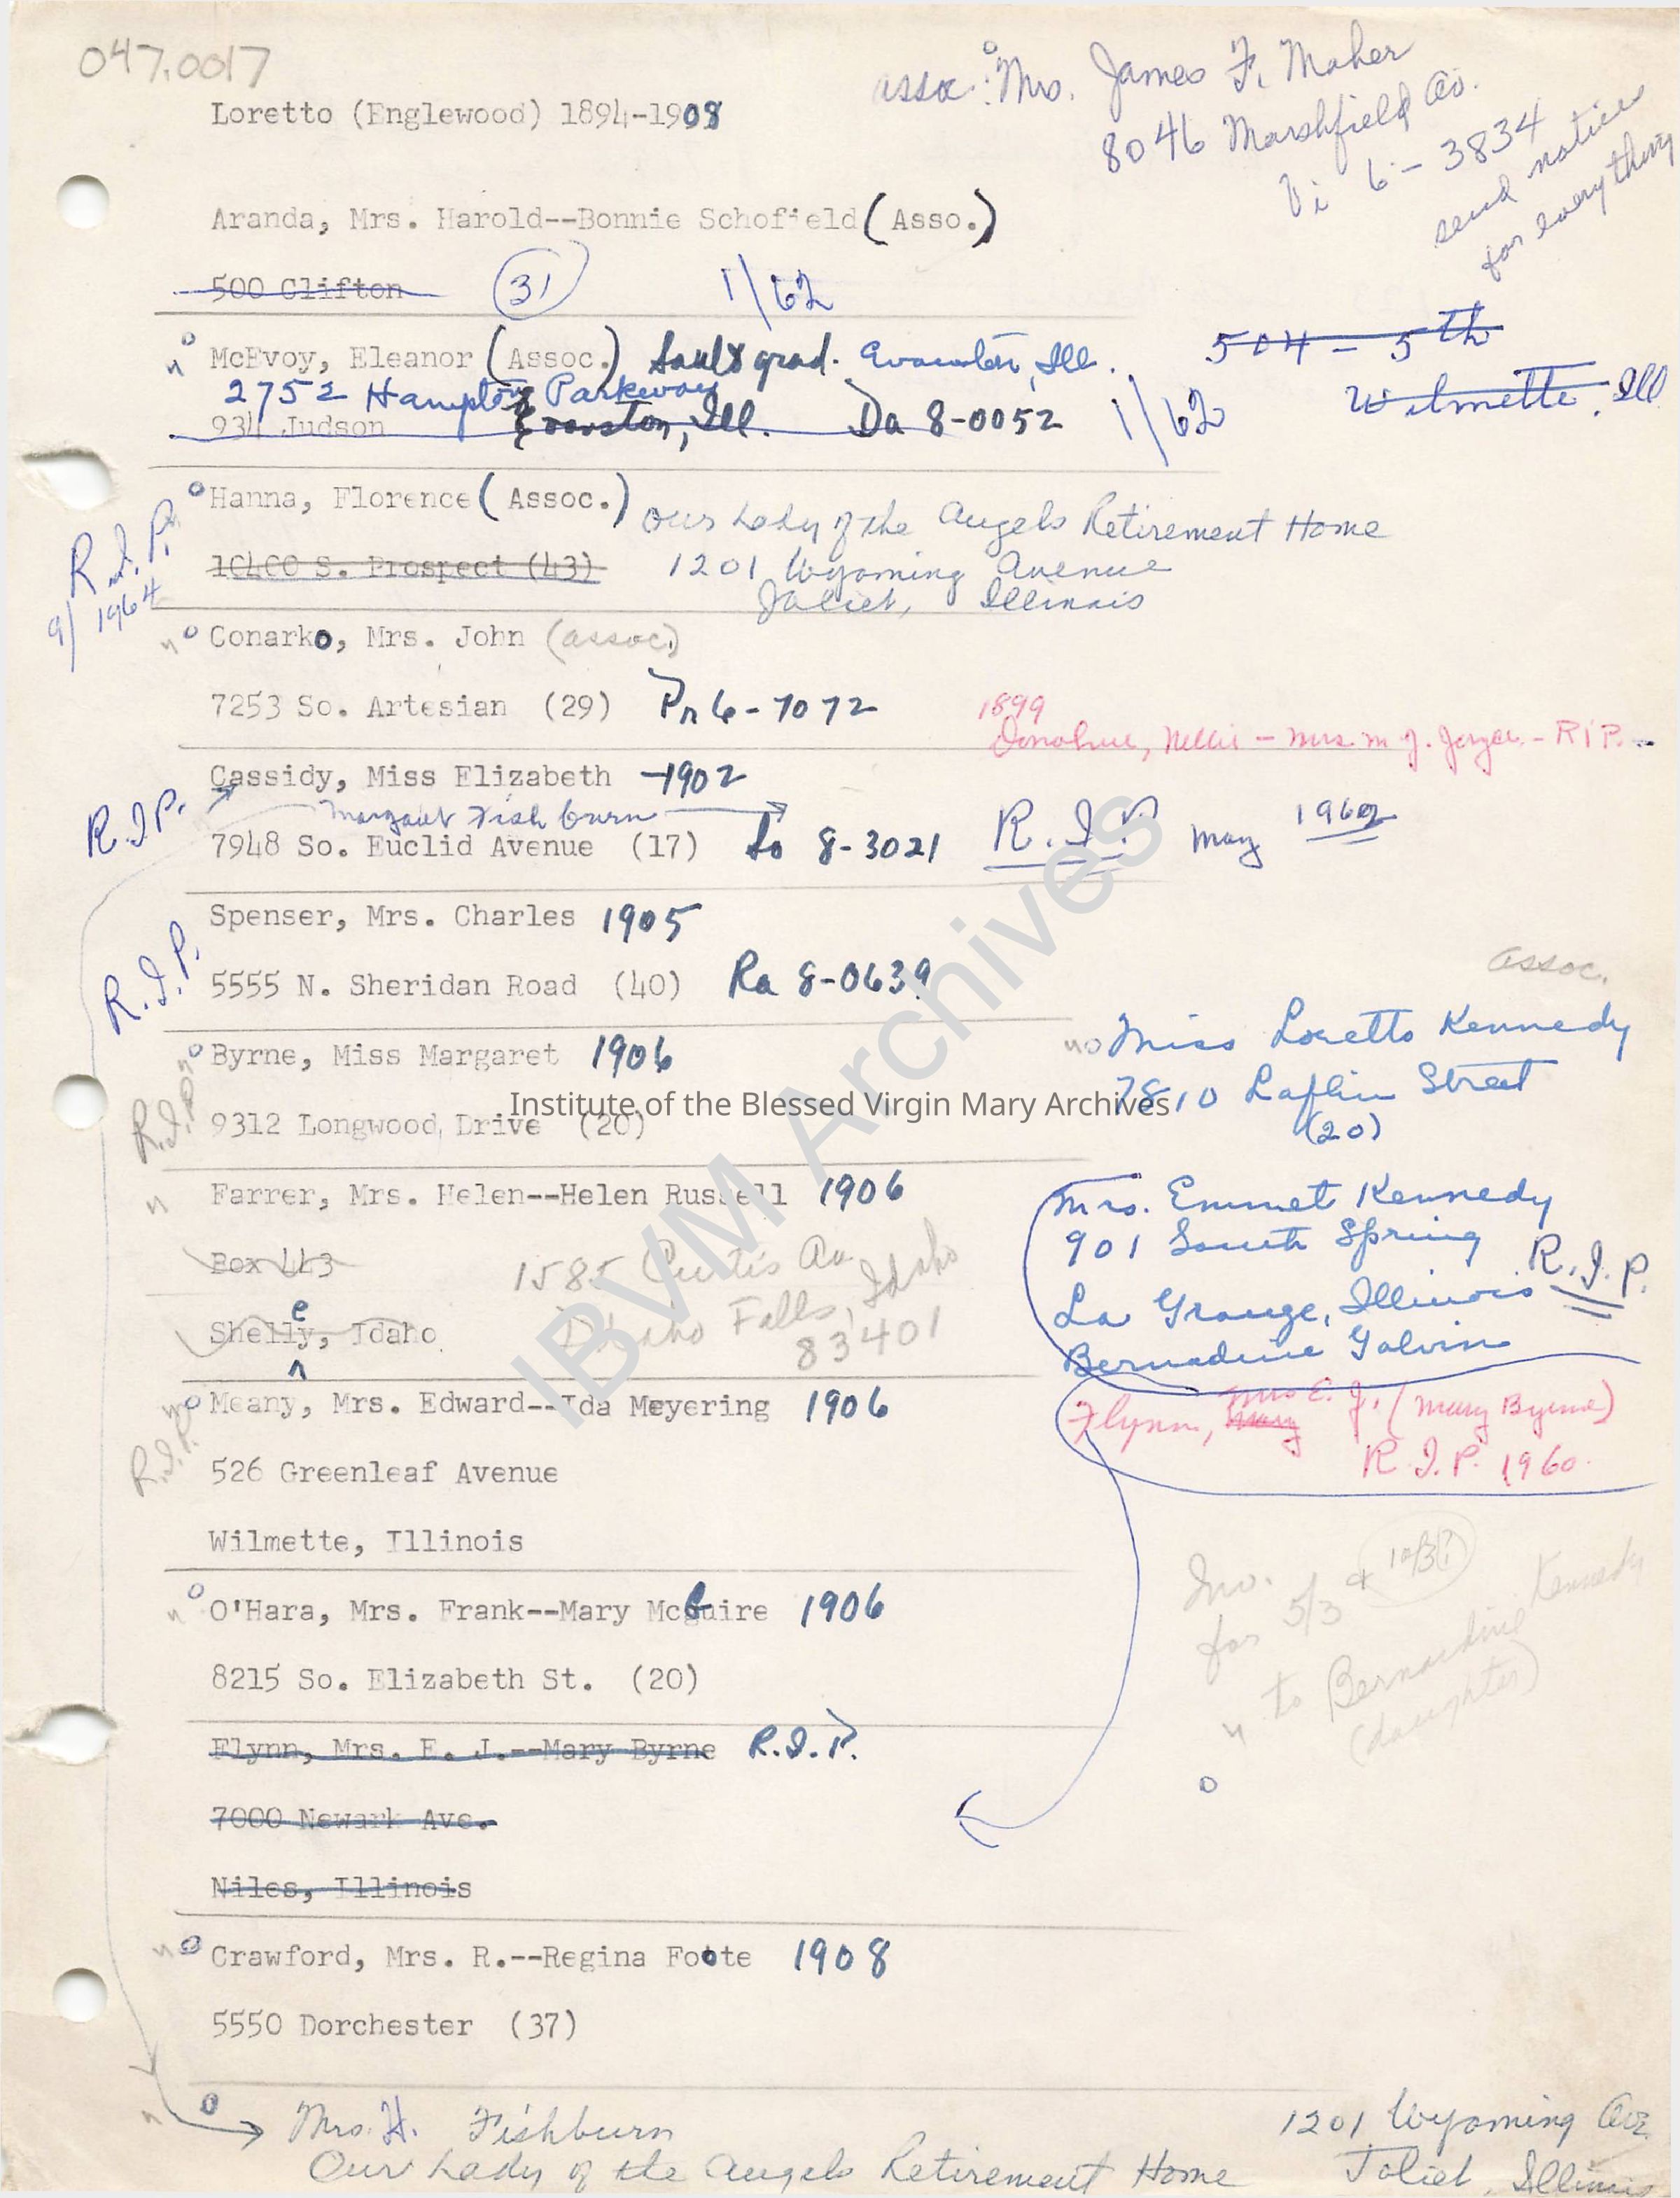 047.0017
assoc: Mrs. James F. Maher
8046 Marshfield Av.
Vi 6-3834
send notices
for everything
Loretto (Englewood) 1894-1908
Aranda, Mrs. Harold--Bonnie Schofield (Asso.)
500 Clifton (31) 1/62
504 - 5th
Wilmette, Ill
McEvoy, Eleanor (Assoc.) Sault grad. Evanston, Ill.
2752 Hampton Parkway
934 Judson Evanston, Ill. Da 8-0052 1/62
Hanna, Florence (Assoc.) Our Lady of the Angels Retirement Home
R.I.P. 9/1964
10400 S. Prospect (43) 1201 Wyoming Avenue
Joliet, Illinois
Conarko, Mrs. John (assoc.)
7253 So. Artesian (29) Pr 6-7072
1899
Donohue, Nellie - Mrs. M. J. Joyce - RIP.
Cassidy, Miss Elizabeth -1902
R.I.P. Margaret Fishburn
7948 So. Euclid Avenue (17) So 8-3021 R.I.P. May 1962
Spenser, Mrs. Charles 1905
R.I.P.
5555 N. Sheridan Road (40) Ra 8-0639
assoc.
no Miss Loretto Kennedy
7810 Laflin Street
(20)
Byrne, Miss Margaret 1906
R.I.P.
9312 Longwood Drive (20)
Institute of the Blessed Virgin Mary Archives
IBVM Archives
Farrer, Mrs. Helen--Helen Russell 1906
Box 443 1585 Curtis Av
Shelley, Idaho Idaho Falls, Idaho
83401
Mrs. Emmet Kennedy
901 South Spring
La Grange, Illinois R.I.P.
Bernadine Galvin
Meany, Mrs. Edward--Ida Meyering 1906
R.I.P.
526 Greenleaf Avenue
Wilmette, Illinois
Flynn, Mary Mrs E. J. (Mary Byrne)
R.I.P. 1960.
Inv.
for 5/3 &
to Bernardine Kennedy
(daughter)
O'Hara, Mrs. Frank--Mary McGuire 1906
8215 So. Elizabeth St. (20)
Flynn, Mrs. E. J.--Mary Byrne R.I.P.
7000 Newark Ave.
Niles, Illinois
Crawford, Mrs. R.--Regina Foote 1908
5550 Dorchester (37)
Mrs. H. Fishburn 1201 Wyoming Ave.
Our Lady of the Angels Retirement Home Joliet, Illinois